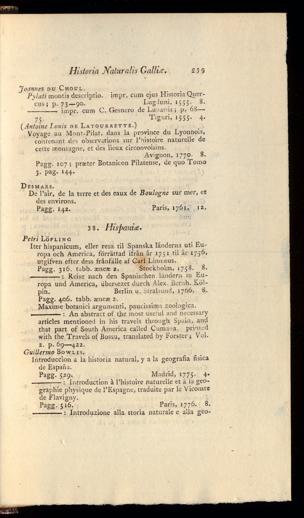 Historia Naturalis Galliæ. 239
JOANNES DU CHOUL.
Pylati montis descriptio. impr. cum ejus Historia Quer-
cus; p. 73—90. Lugduni, 1555. 8.
———: impr. cum C. Gesnero de Lunariis; p. 68—
75. Tiguri, 1555. 4.
(Antoine Louis DE LATOURRETTE.)
Voyage au Mont-Pilat. dans la province du Lyonnois,
contenant des observations sur l'histoire naturelle de
cette montagne, et des lieux circonvoisins.
Avignon, 1770. 8.
Pagg. 107; præter Botanicon Pilatense, de quo Tomo
3. pag. 144.
DESMARS.
De l'air, de la terre et des eaux de Boulogne sur mer, et
des environs.
Pagg. 142. Paris, 1761. 12.
28. Hispaniæ.
Petri LÖFLING
Iter hispanicum, eller resa til Spanska länderna uti Eu-
ropa och America, förrättad ifrån år 1751 til år 1756,
utgifven efter dess frånfälle af Carl Linnæus.
Pagg. 316. tabb. æneæ 2. Stockholm, 1758. 8.
———: Reise nach den Spanischen ländern in Eu-
ropa und America, übersezet durch Alex. Bernh. Köl-
pin. Berlin u. Stralsund, 1766. 8.
Pagg. 406. tabb. æneæ 2.
Maxime botanici argumenti, paucissima zoologica.
———: An abstract of the most useful and necessary
articles mentioned in his travels through Spain, and
that part of South America called Cumana. printed
with the Travels of Bossu, translated by Forster; Vol.
2. p. 69—422.
Guillermo BOWLES.
Introduccion a la historia natural, y a la geografia fisica
de España.
Pagg. 529. Madrid, 1775. 4.
———: Introduction à l'histoire naturelle et à la geo-
graphie physique de l'Espagne, traduite par le Vicomte
de Flavigny.
Pagg. 516. Paris, 1776. 8.
———: Introduzione alla storia naturale e alla geo-